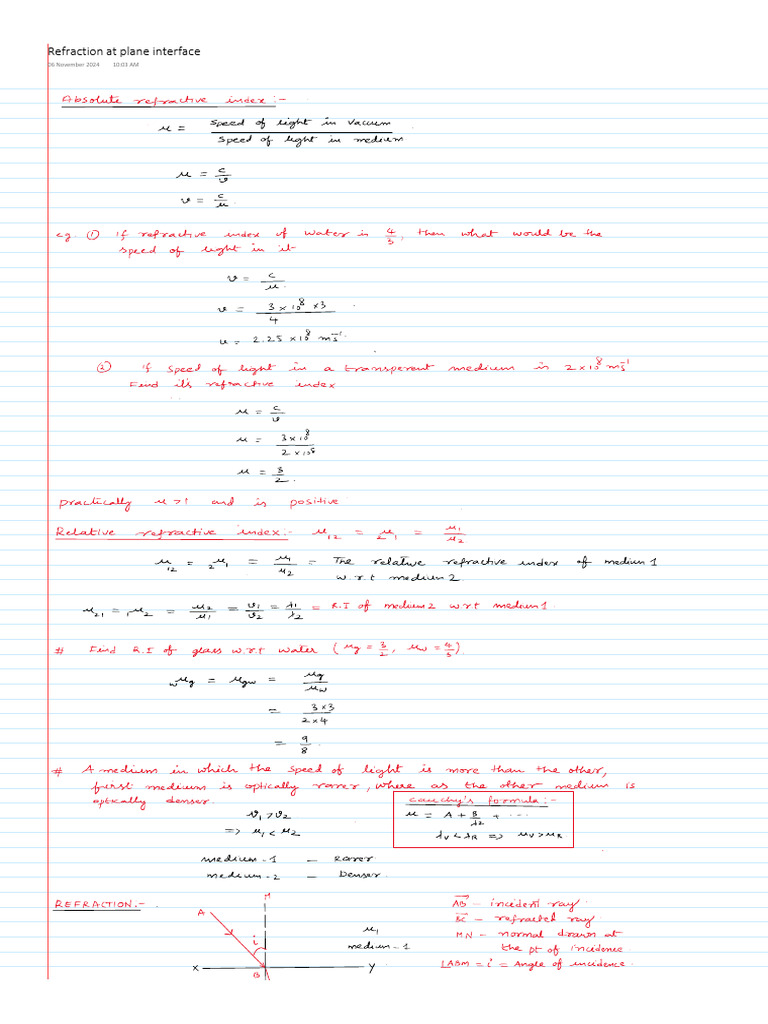 Refraction at plane interface
06 November 2024 10:03 AM
Absolute refractive index :-
μ = speed of light in vacuum / speed of light in medium
μ = c/v
v = c/μ
eg. ① If refractive index of water is 4/3, then what would be the
speed of light in it
v = c/μ
v = 3 × 10⁸ × 3 / 4
v = 2.25 × 10⁸ ms⁻¹
② If speed of light in a transparent medium is 2 × 10⁸ ms⁻¹
Find it's refractive index
μ = c/v
μ = 3 × 10⁸ / 2 × 10⁸
μ = 3/2.
practically μ > 1 and is positive
Relative refractive index:- μ₁₂ = ₂μ₁ = μ₁/μ₂
μ₁₂ = ₂μ₁ = μ₁/μ₂ = The relative refractive index of medium 1
w.r.t medium 2
μ₂₁ = ₁μ₂ = μ₂/μ₁ = v₁/v₂ = λ₁/λ₂ = R.I of medium 2 w r t medium 1
# Find R.I of glass w.r.t water (μg = 3/2, μw = 4/3)
wμg = μgw = μg/μw
= 3×3 / 2×4
= 9/8.
# A medium in which the speed of light is more than the other,
first medium is optically rarer, where as the other medium is
optically denser.
v₁ > v₂
=> μ₁ < μ₂
Cauchy's formula:-
μ = A + B/λ² + ...
λv < λR => μv > μR
medium-1 – rarer
medium-2 – Denser
REFRACTION.-
M
A
i
μ₁
medium-1
X
Y
B
AB – incident ray
BC – refracted ray
MN – normal drawn at
the pt of incidence
∠ABM = i = Angle of incidence.